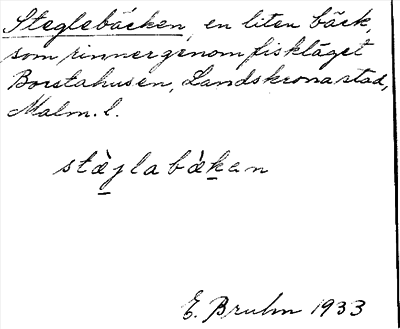 Steglebäcken, en liten bäck,
som rinner genom fiskläget
Borstahusen, Landskrona stad,
Malm. l.
stæ̀jlabæ̀kan
E. Bruhn 1933